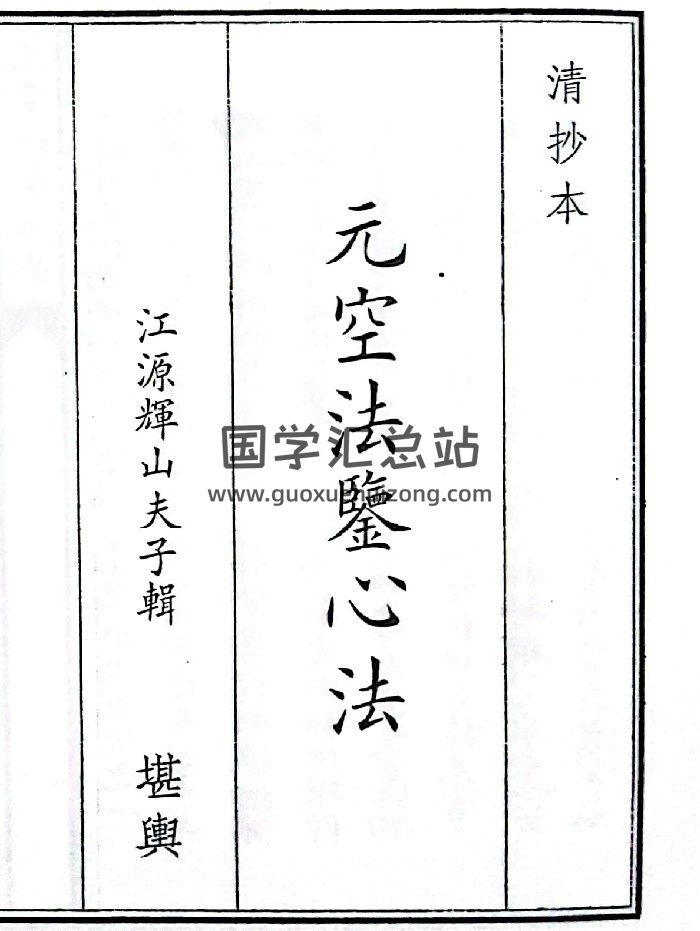 清抄本
元空法鑒心法
江源輝山夫子輯
堪輿
国学汇总站
www.guoxuehuizong.com